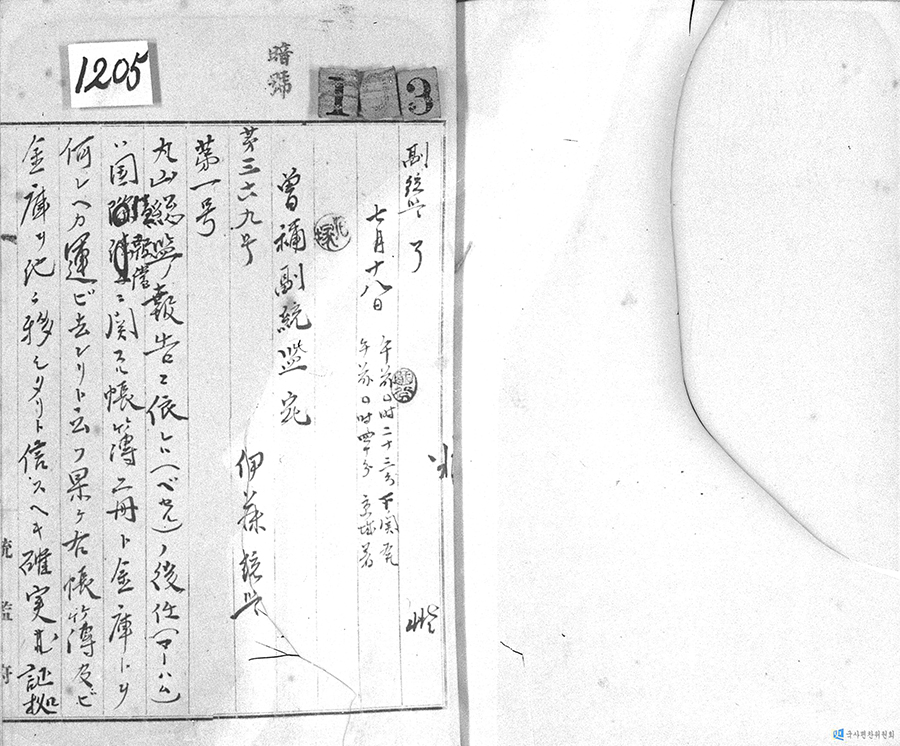 1205
暗號
1 3
副統監 了
七月十八日
午前〇時二十三分 下関発
午前〇時四十分 京城着
曽禰副統監宛
伊藤統監
第三六九号
第一号
丸山総監ノ報告ニ依レハ(ベセル)ノ後任(マーハム)
ハ国債報償ニ関スル帳簿二冊ト金庫トヲ
何レヘカ運ビ去レリト云フ果シテ右帳簿及ビ
金庫ヲ他ニ移シタリト信スヘキ確実ナル証拠
統監府
국사편찬위원회